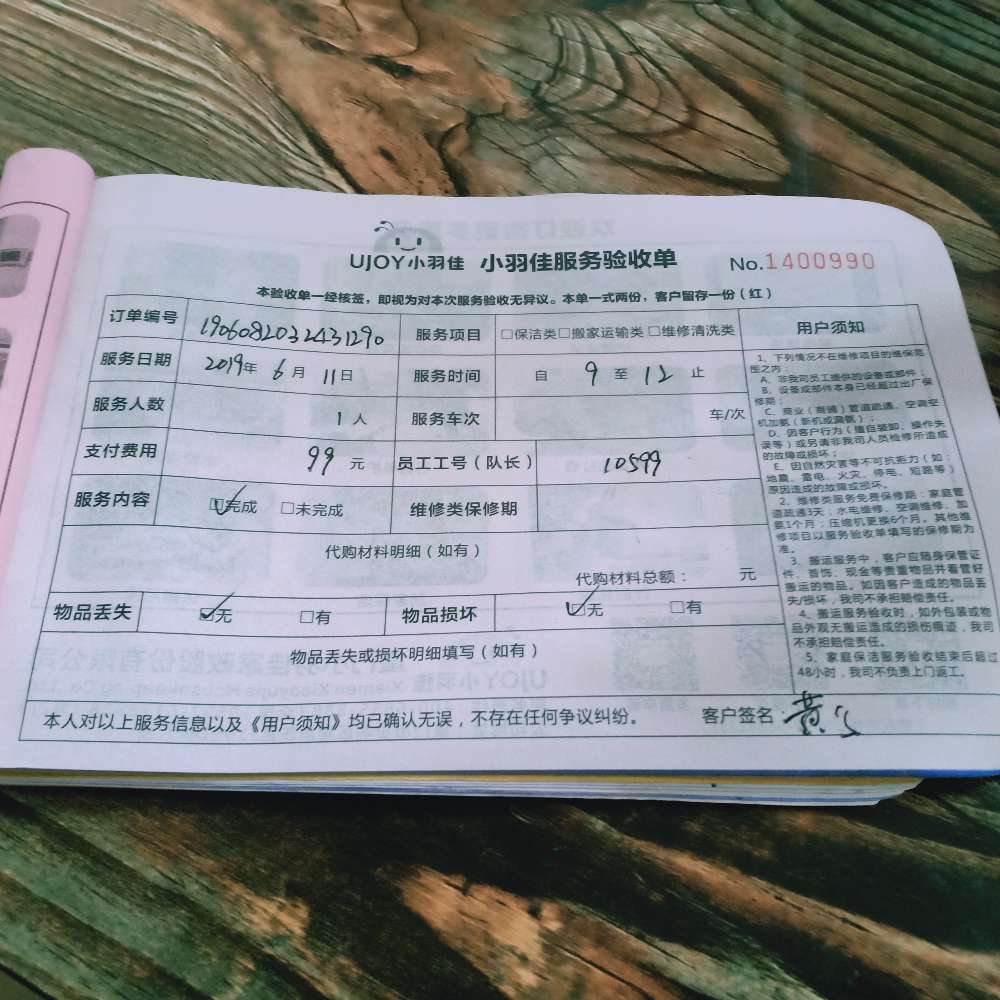 UJOY小羽佳 小羽佳服务验收单 No.1400990
本验收单一经核签，即视为对本次服务验收无异议。本单一式两份，客户留存一份（红）
订单编号 1906082032431290 服务项目 □保洁类□搬家运输类□维修清洗类
服务日期 2019年 6月 11日 服务时间 自 9 至 12 止
服务人数 1人 服务车次 车/次
支付费用 99元 员工工号（队长） 10599
服务内容 ☑完成 □未完成 维修类保修期
代购材料明细（如有）
代购材料总额： 元
物品丢失 ☑无 □有 物品损坏 ☑无 □有
物品丢失或损坏明细填写（如有）
本人对以上服务信息以及《用户须知》均已确认无误，不存在任何争议纠纷。 客户签名：黄
用户须知
1、下列情况不在维修项目的维保范
围之内：
A、非我司员工提供的设备或部件；
B、设备或部件本身已经超过出厂保
修期；
C、商业（商铺）管道疏通、空调空
机加氨（新机或漏氨）；
D、因客户行为（擅自装卸、操作失
误等）或另请非我司人员检修所造成
的故障或损坏；
E、因自然灾害等不可抗拒力（如：
地震、雷电、火灾、停电、短路等）
原因造成的故障或损坏。
2、维修类服务免费保修期：家庭管
道疏通3天；水电维修、空调维修、加
氨1个月；压缩机更换6个月。其他维
修项目以服务验收单填写的保修期为
准。
3、搬运服务中，客户应随身保管证
件、首饰、现金等贵重物品并看管好
搬运的物品。如因客户造成的物品丢
失/损坏，我司不承担赔偿责任。
4、搬运服务验收时，如外包装或物
品外观无搬运造成的损伤痕迹，我司
不承担赔偿责任。
5、家庭保洁服务验收结束后超过
48小时，我司不负责上门返工。